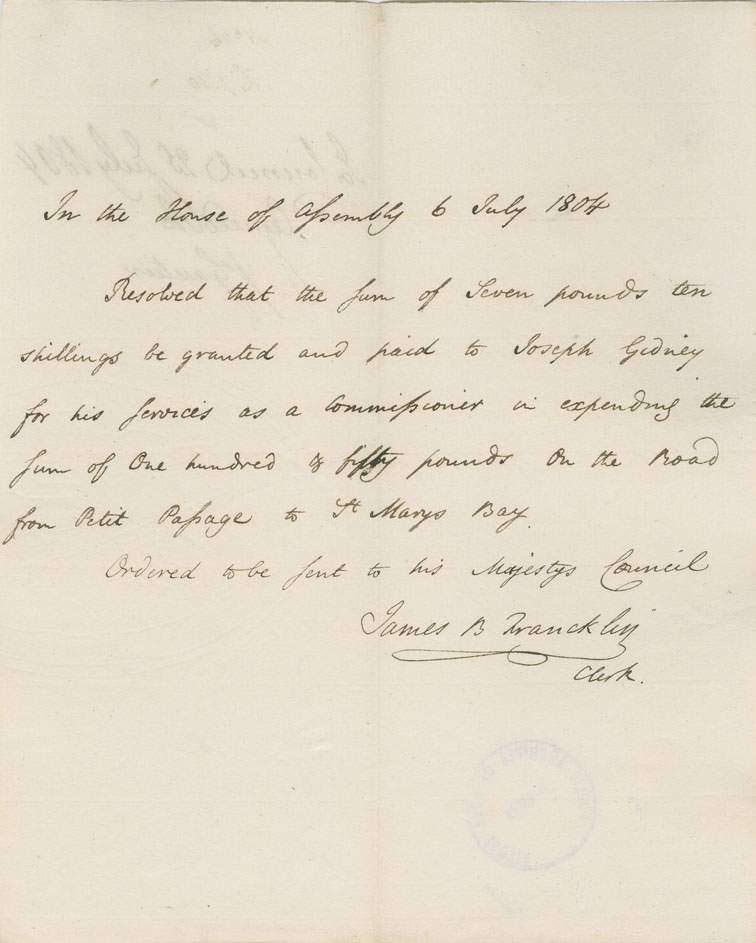 In the House of Assembly 6 July 1804
Resolved that the sum of Seven pounds ten
shillings be granted and paid to Joseph Gidney
for his services as a Commissioner in expending the
sum of One hundred & fifty pounds on the Road
from Petit Passage to St Marys Bay.
Ordered to be sent to his Majestys Council
James B Francklin
Clerk.